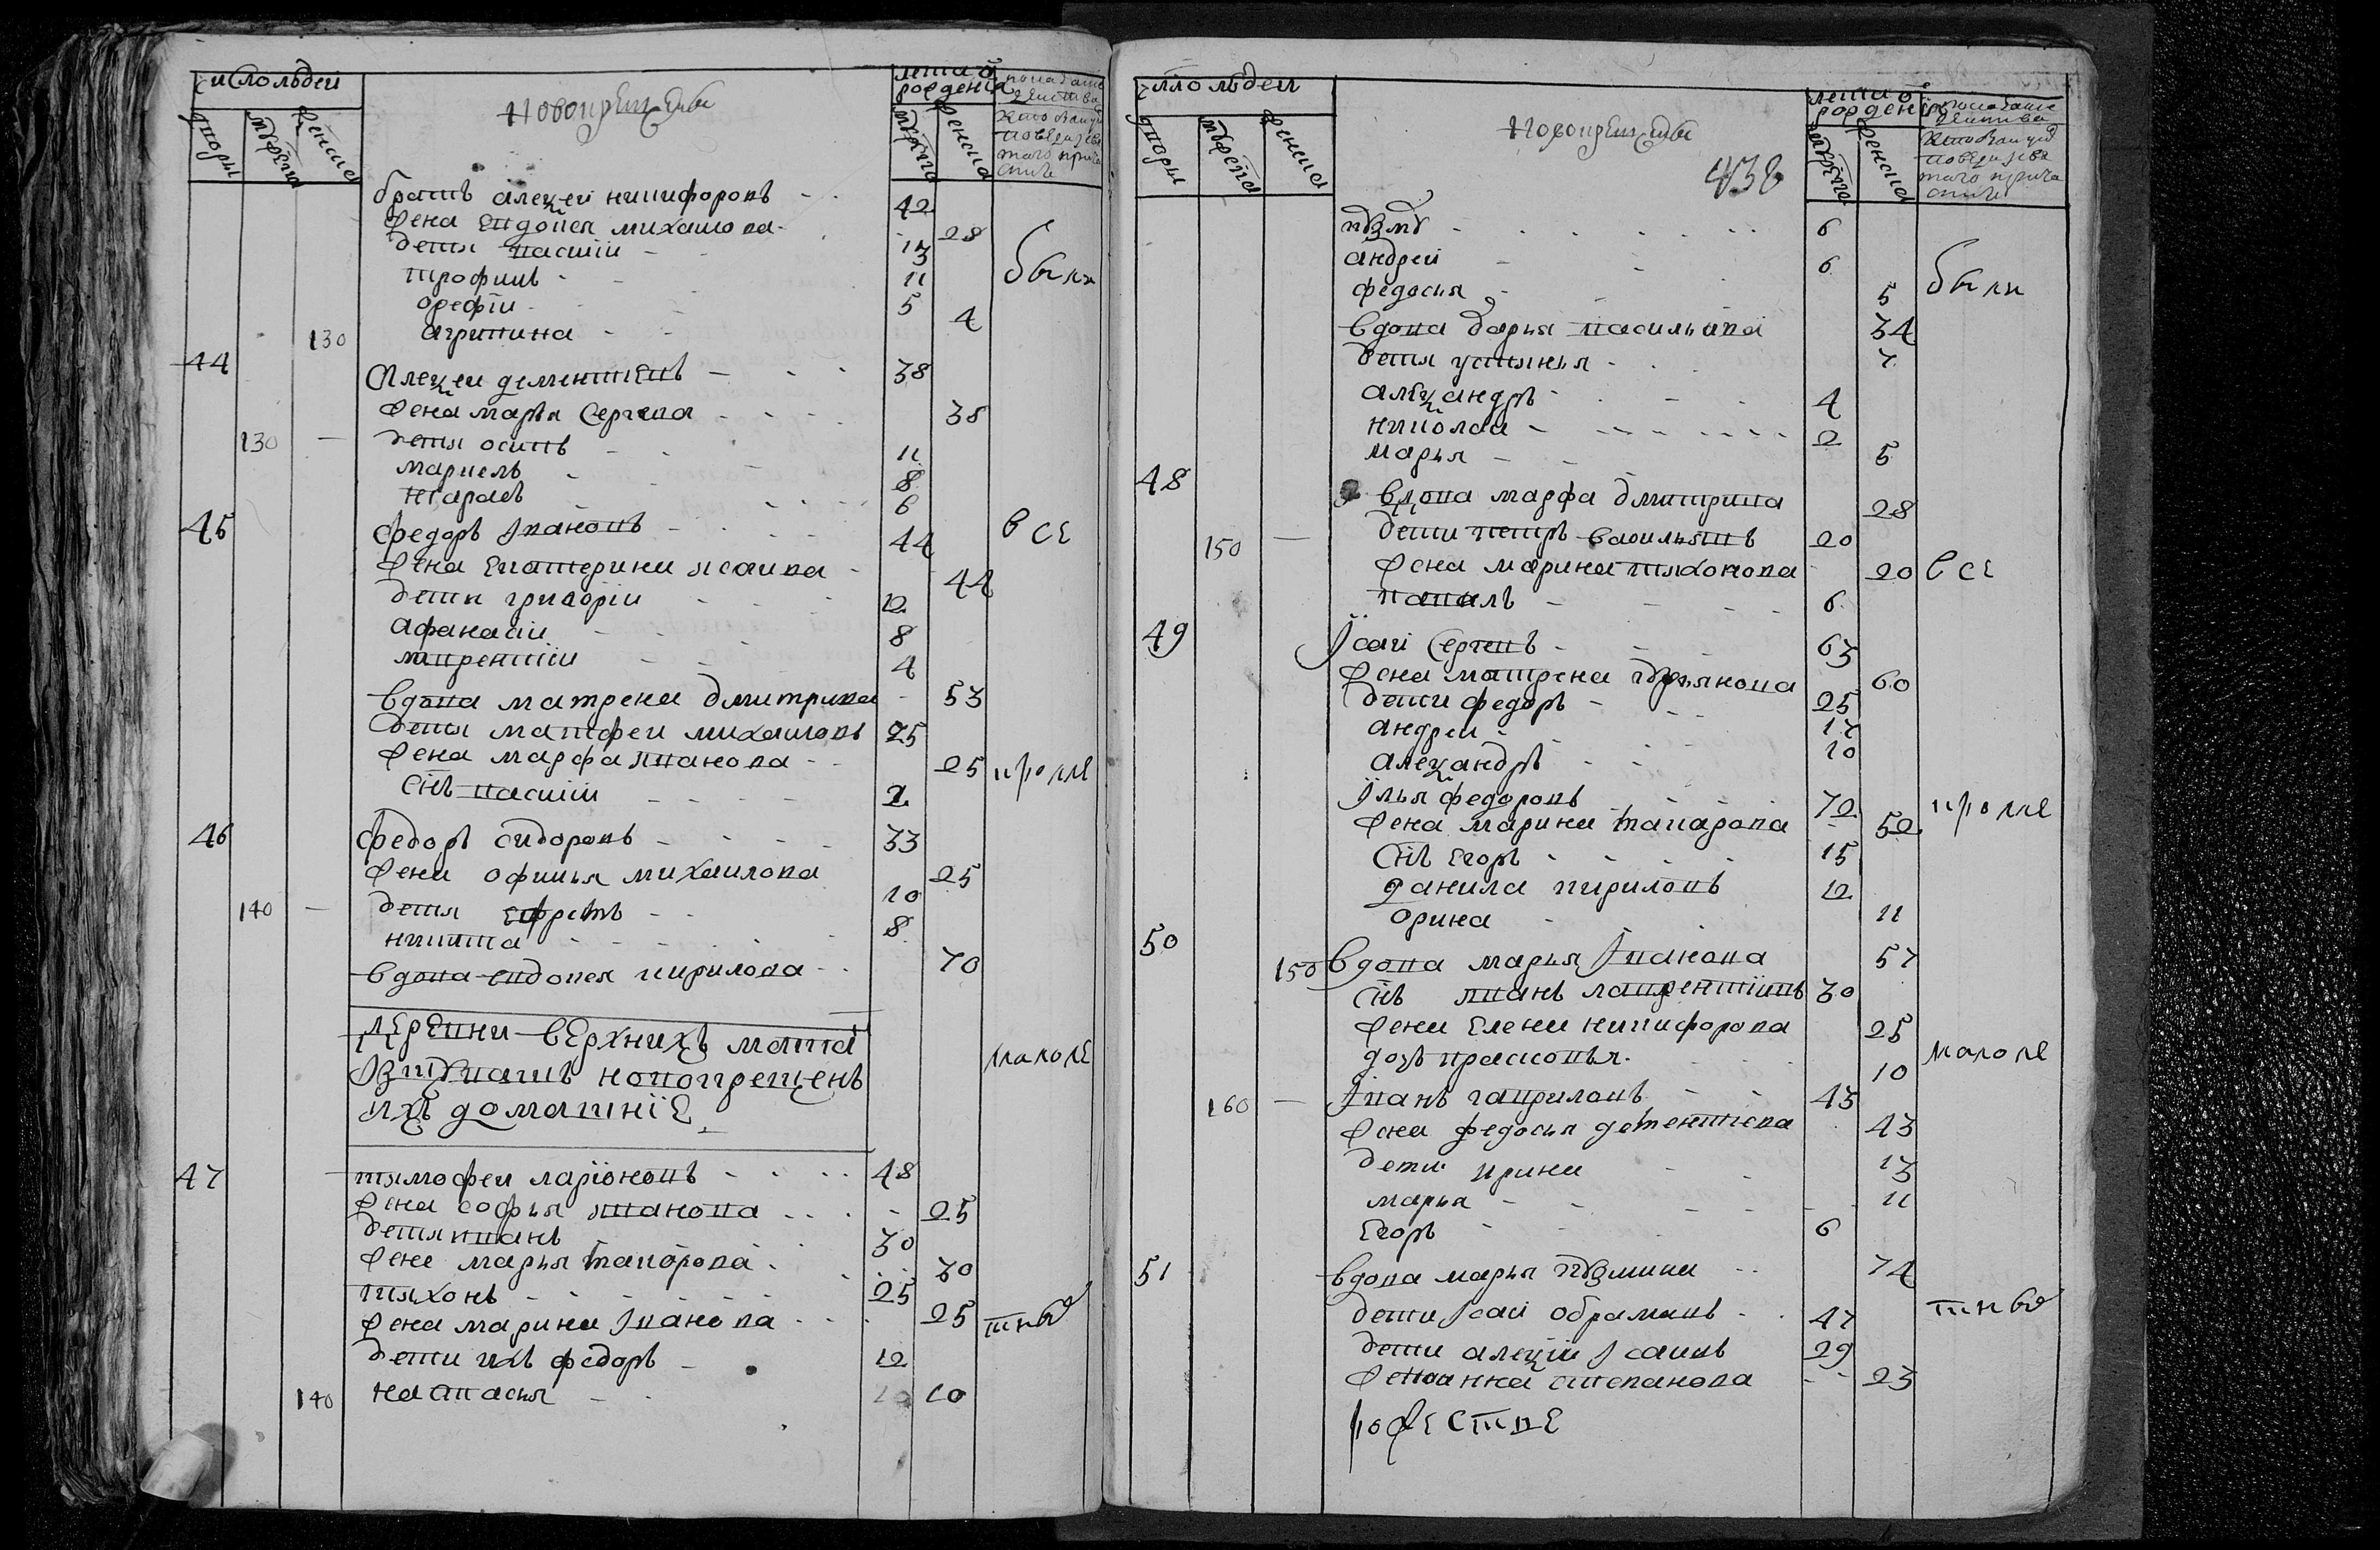 число людей
дворы
мужеска
женска
Новокрещены
лета от рождения
мужеска
женска
братъ алеѯеи никифоровъ 42
жена евдокея михаилова 28
дети василии 13
трофимъ 11
орефіи 5
130 агрипина 4
были
44 Алеѯеи дементиевъ 38
жена марья Сергеева 38
130 дети осипъ 11
маркелъ 8
тарасъ 6
45 федоръ Ивановъ 44
все
жена Екатерина исаива 44
дети григории 12
афанасии 8
лаврентии 4
вдова матрена дмитрива 53
дети матфеи михаиловъ 25
жена марфа иванова 25
кроме
снъ василии 2
46 федоръ сидоровъ 33
жена офимья михаилова 25
140 дети ефремъ 10
никита 8
вдова евдокея кирилова 70
деревни верхнихъ мата
новокрещенъ
ихъ домашніе
малоле
47 тимофеи ларіоновъ 48
жена софья иванова 25
дети иванъ 30
жена марья макарова 30
тихонъ 25
жена марина Иванова 25
тныѣ
дети ихъ федоръ 12
140 настасья 10
число людеи
дворы
мужеска
женска
Новокрещены
438
лета от рождения
мужеска
женска
кузма 6
андреи 6
федосья 5
были
вдова дарья василиива 34
дети устинья 7
алеѯандръ 4
николаи 2
марья 5
48 вдова марфа дмитрива 28
150 дети петръ василиевъ 20
жена марина тихонова 20
все
павелъ 6
49 Исаи Сергеевъ 63
жена матрена 60
дети федоръ 25
андреи 17
алеѯандръ 10
Илья федоровъ 72
жена марина макарова 52
кроме
снъ Егоръ 15
данила кириловъ 12
орина 11
50 150 вдова марья Иванова 57
снъ иванъ лаврентиивъ 30
жена Елена никифорова 25
дочь прасковья 10
малоле
160 Иванъ гавриловъ 43
жена федосья дементиева 43
дети ирина 13
марья 11
Егоръ 6
51 вдова марья кузмина 74
дети Исаи обрамовъ 47
тныѣ
дети алеѯии Исаивъ 29
жена анна степанова 23
рожестве